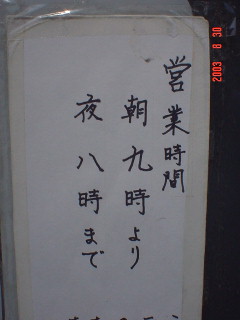 営業時間
朝九時より
夜八時まで
2003 8 30